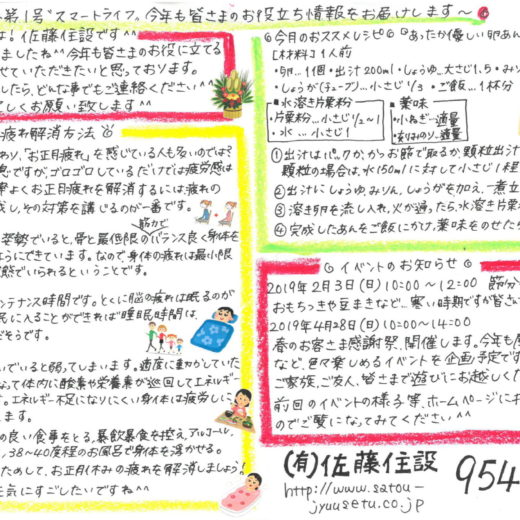 第1号"スマートライフ"。今年も皆さまのお役立ち情報をお届けします～
！佐藤住設です！
ましたね^^今年も皆さまのお役に立てる
せていただきたいと思っております。
したら、どんな事でもご連絡ください^^
しくお願い致します^^
疲れ解消方法
わり、"お正月疲れ"を感じている人も多いのでは?
ですが、ゴロゴロしているだけでは疲労感は
率よくお正月疲れを解消するには疲れの
し、その対策を講じるのが一番です。
姿勢でいると、骨と最低限の筋力でバランス良く身体を
ようにできています。なので、身体の疲れは最小限
態でいられるということです。
ンテナンス時間です。とくに脳の疲れは眠るのが
眠に入ることができれば睡眠時間は、
だそうです。
いでいると弱ってしまいます。適度に動かしていた
なって体内に酸素や栄養素が巡回してエネルギー
す。エネルギー不足になりにくい身体は疲労しに
ます。
の良い食事をとる、暴飲暴食を控え、アルコール
、38～40度程のお風呂で身体を温める。
ためして、お正月休みの疲れを解消しましょう!
元気にすごしたいですね^^
今月のおススメレシピ あったか優しい卵あん
[材料] 1人前
・卵…1個・出汁200ml・しょうゆ…大さじ1.5・みり
・しょうが(チューブ)…小さじ1/2・ご飯…1杯分
■水溶き片栗粉
片栗粉…小さじ1/2～1
・水…小さじ1
■薬味
・小ねぎ…適量
・刻みのり…適量
①出汁はパックか、かつお節で取るか、顆粒出汁
顆粒の場合は、水150mlに対して小さじ1程
②出汁にしょうゆ、みりん、しょうがを加え、一煮立
③溶き卵を流し入れ、火が通ったら、水溶き片栗粉
④完成したあんをご飯にかけ、薬味をのせたら
イベントのお知らせ
2019年2月3日(日)10:00～12:00 節分
おもちつきや豆まきなど…寒い時期ですが皆さま
2019年4月28日(日)10:00～14:00
春のお客さま感謝祭、開催します。今年も
など、色々楽しめるイベントを企画予定です
ご家族、ご友人、皆さまで遊びにお越しくだ
前回のイベントの様子等、ホームページにお
のでご覧になってみてください^^
(有)佐藤住設 954
http://www.satou-
jyuusetu.co.jp